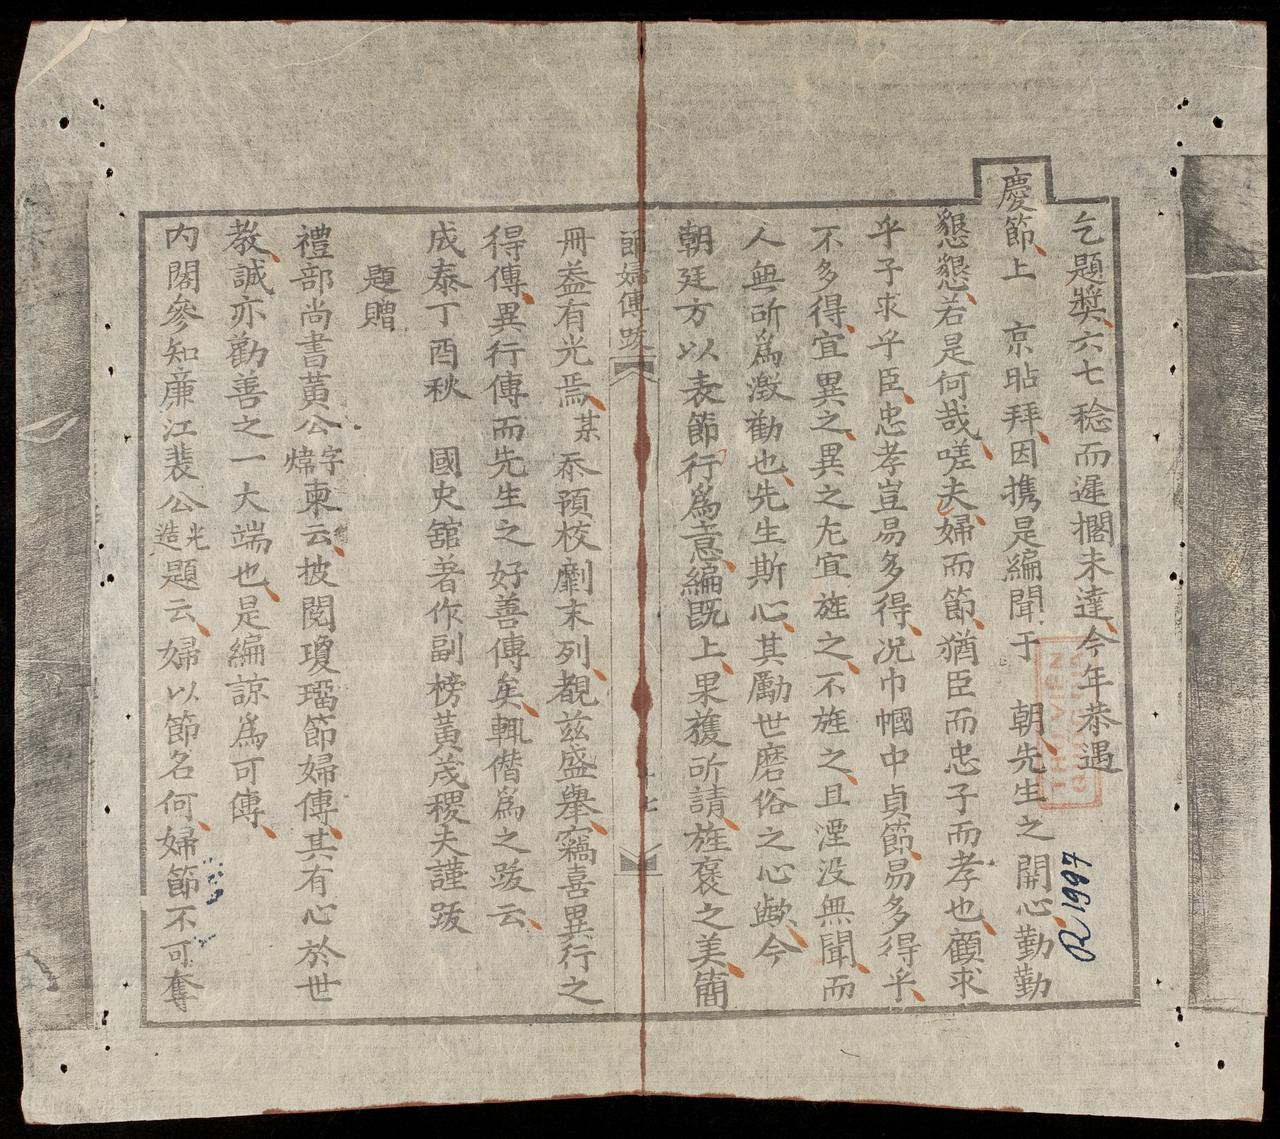 乞題獎六七稔而遲擱未達今年恭遇
慶節上　京貼拜因携是編聞于　朝先生之開心勤勤
懇懇若是何哉嗟夫婦而節猶臣而忠子而孝也顧求
乎子求乎臣忠孝豈易多得况巾幗中貞節易多得乎
不多得宜異之異之尤宜旌之不旌之且湮没無聞而
人無所爲激勸也先生斯心其勵世磨俗之心歟今
朝廷方以表節行爲意編既上果獲所請旌褒之美簡
節婦傳跋
七
冊益有光焉某忝預校劘末列覩兹盛舉竊喜異行之
得傳異行傳而先生之好善傳矣輒僭爲之跋云
成泰丁酉秋　國史舘著作副榜黄茂稷夫謹跋
題贈
禮部尚書黄公字煒柬云披閲瓊瑙節婦傳其有心於世
教誠亦勸善之一大端也是編諒爲可傳
内閣參知㢘江裴公光造題云婦以節名何婦節不可奪
R 1997